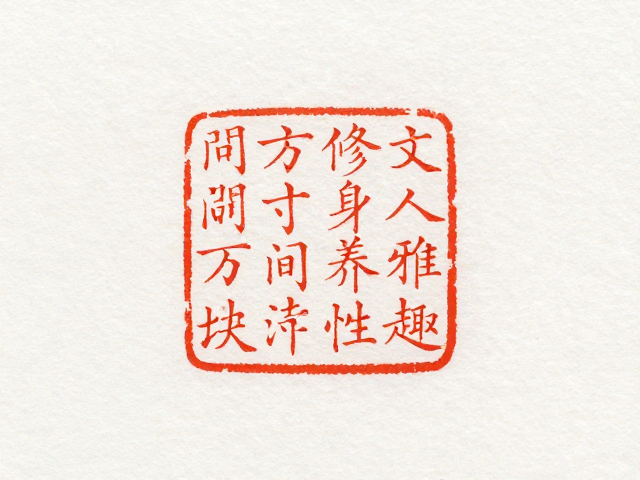 文人雅趣
修身养性
方寸间
問万块